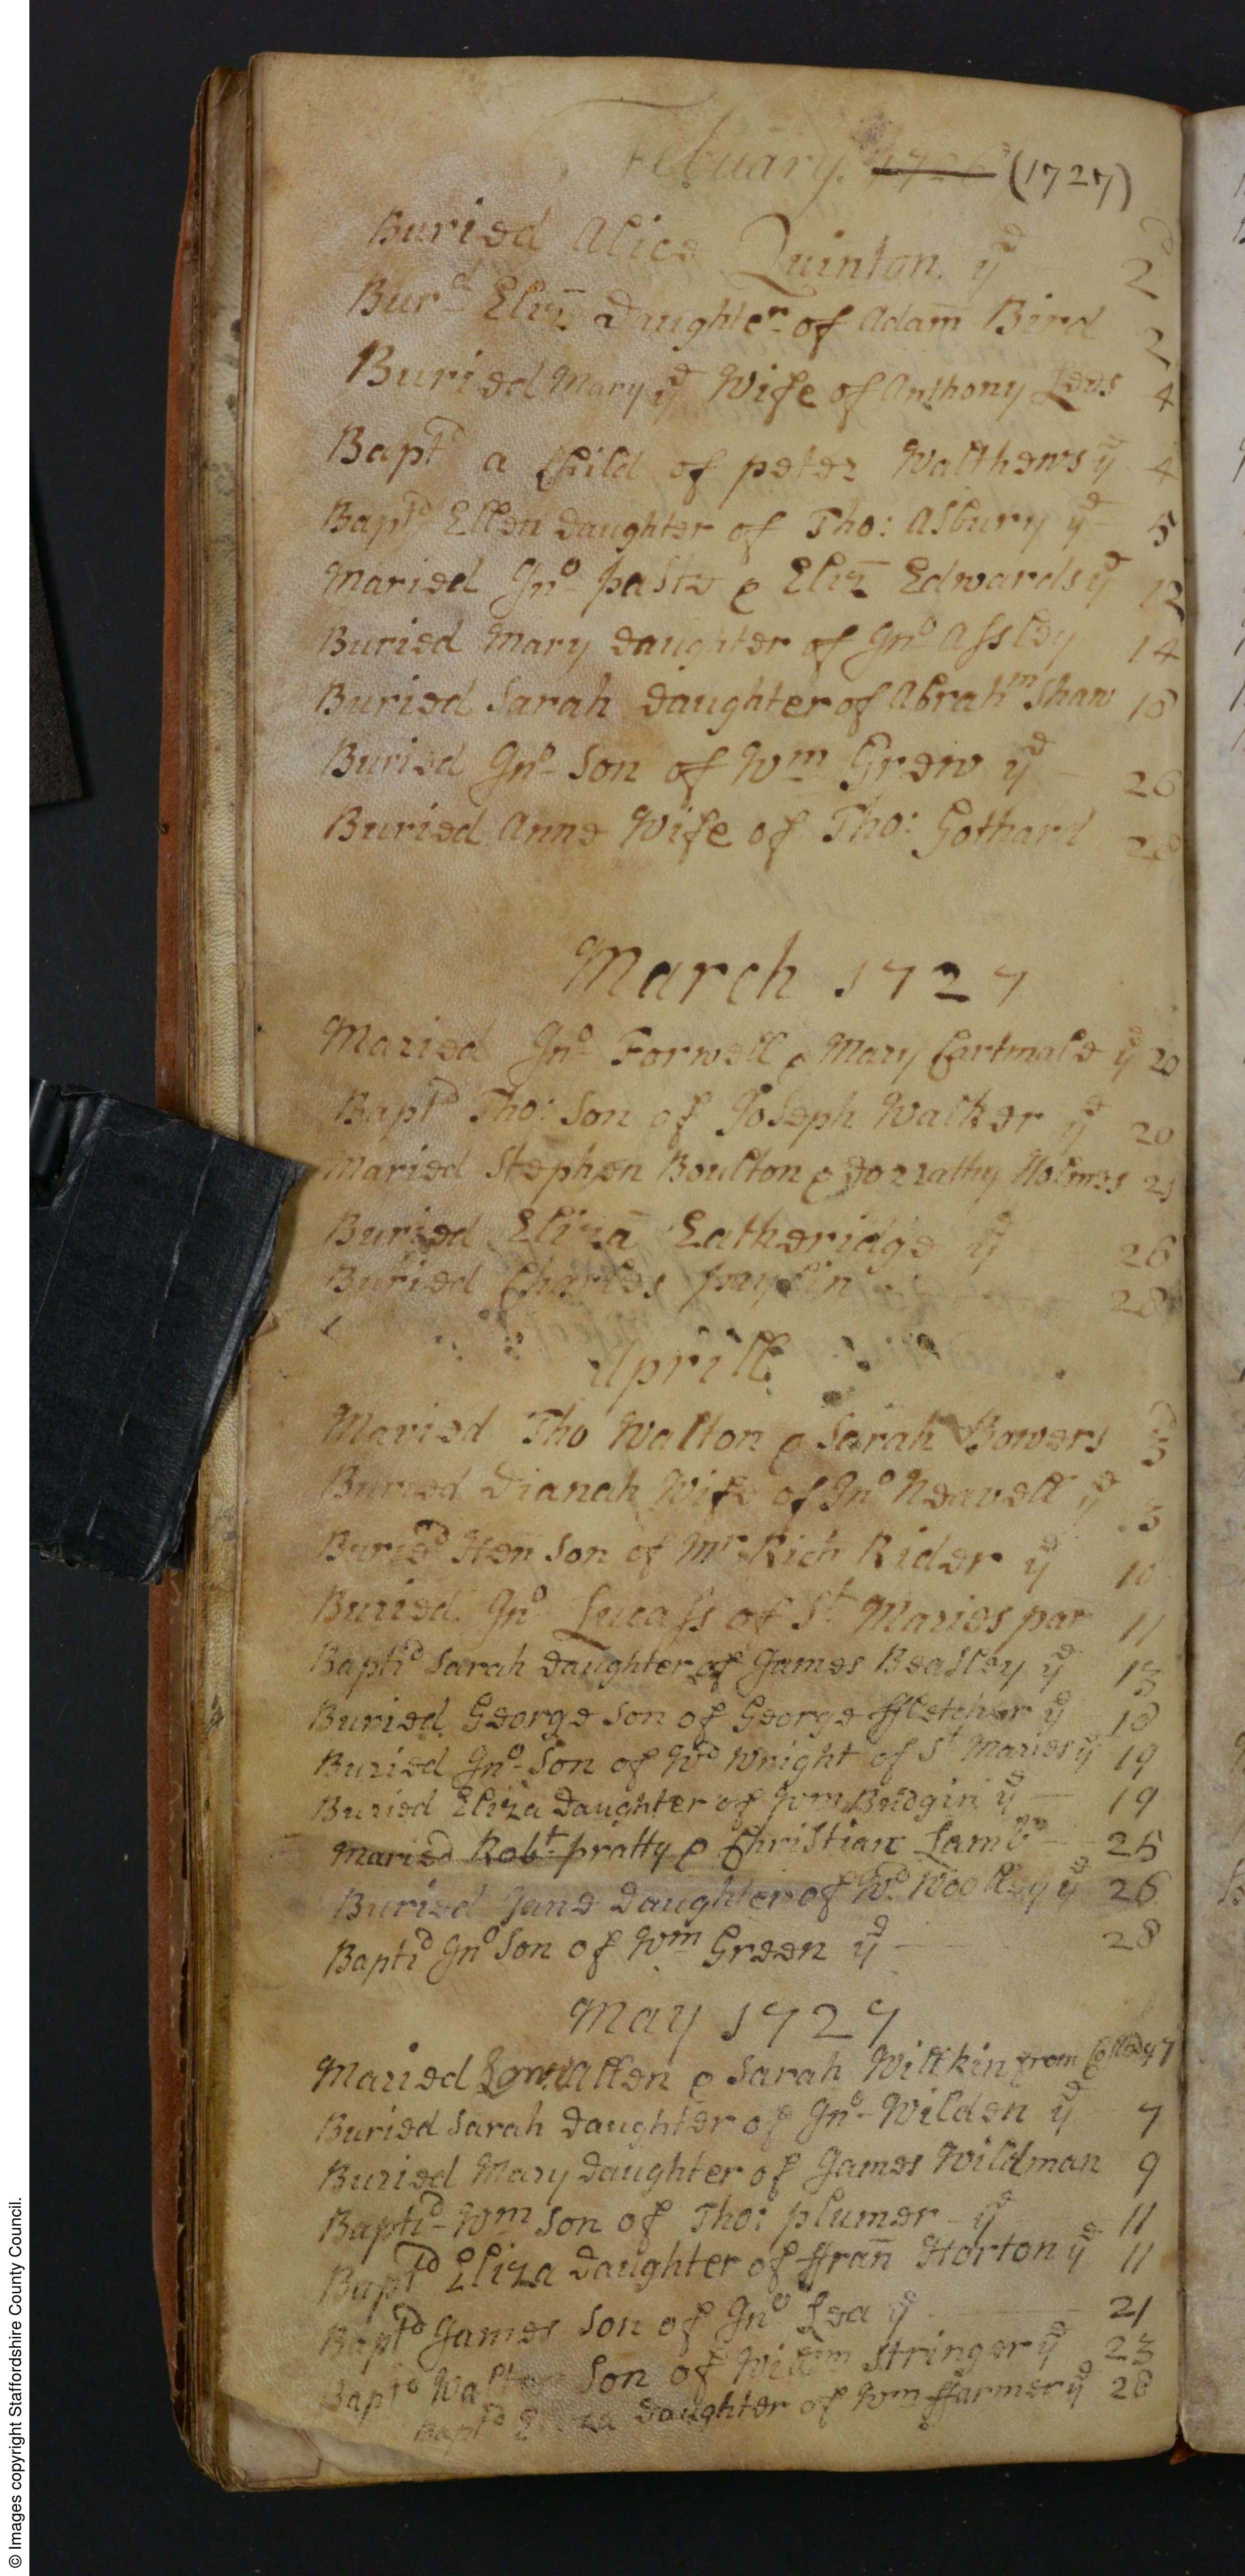 Febuary. 1726 (1727)
Buried Alice Quinton ye 2d
Burd Eliz Daughter of Adam Bird 2
Buried Mary ye Wife of Anthony Lees 4
Baptd a Child of peter Walthews ye 4
Baptd Ellen Daughter of Tho: Asbury ye 5
Maried Jno paste & Eliz Edwards ye 12
Buried Mary Daughter of Jno Assley 14
Buried Sarah Daughter of Abrahm Shaw 18
Buried Jno Son of Wm Grew ye 26
Buried Anne Wife of Tho: Gothard 28
March 1727
Maried Jno Forwell & Mary Cartmale ye 20
Baptd Tho: Son of Joseph Walker ye 20
Maried Stephen Boulton & Dorrathy Holmes 21
Buried Eliza Eatheridge ye 26
Buried Charles 28
Aprill
Maried Tho Walton & Sarah Bowers 3d
Buried Dianah Wife of Jno Neavell ye 3
Buried Hen Son of Mr Rich Rider ye 10
Buried Jno Lucass of St Maries par 11
Baptid Sarah Daughter of James Beasley ye 13
Buried George Son of George ffletcher ye 18
Buried Jno Son of Wd Wright of St Maries ye 19
Buried Eliza Daughter of Wm Budgin ye 19
Maried Robt pratty & Christian Lamb 25
Buried Jane Daughter of Wd Woolley ye 26
Baptid Jno Son of Wm Green ye 28
May 1727
Maried Allen & Sarah Willkin from 7
Buried Sarah Daughter of Jno Wilden ye 7
Buried Mary Daughter of James Wildman 9
Baptid Wm Son of Tho: plumer ye 11
Baptd Eliza Daughter of ffran Horton ye 11
Baptd James Son of Jno Lea ye 21
Baptd Son of Stringer ye 23
Baptd Daughter of Wm ffarmer ye 28
© Images copyright Staffordshire County Council.